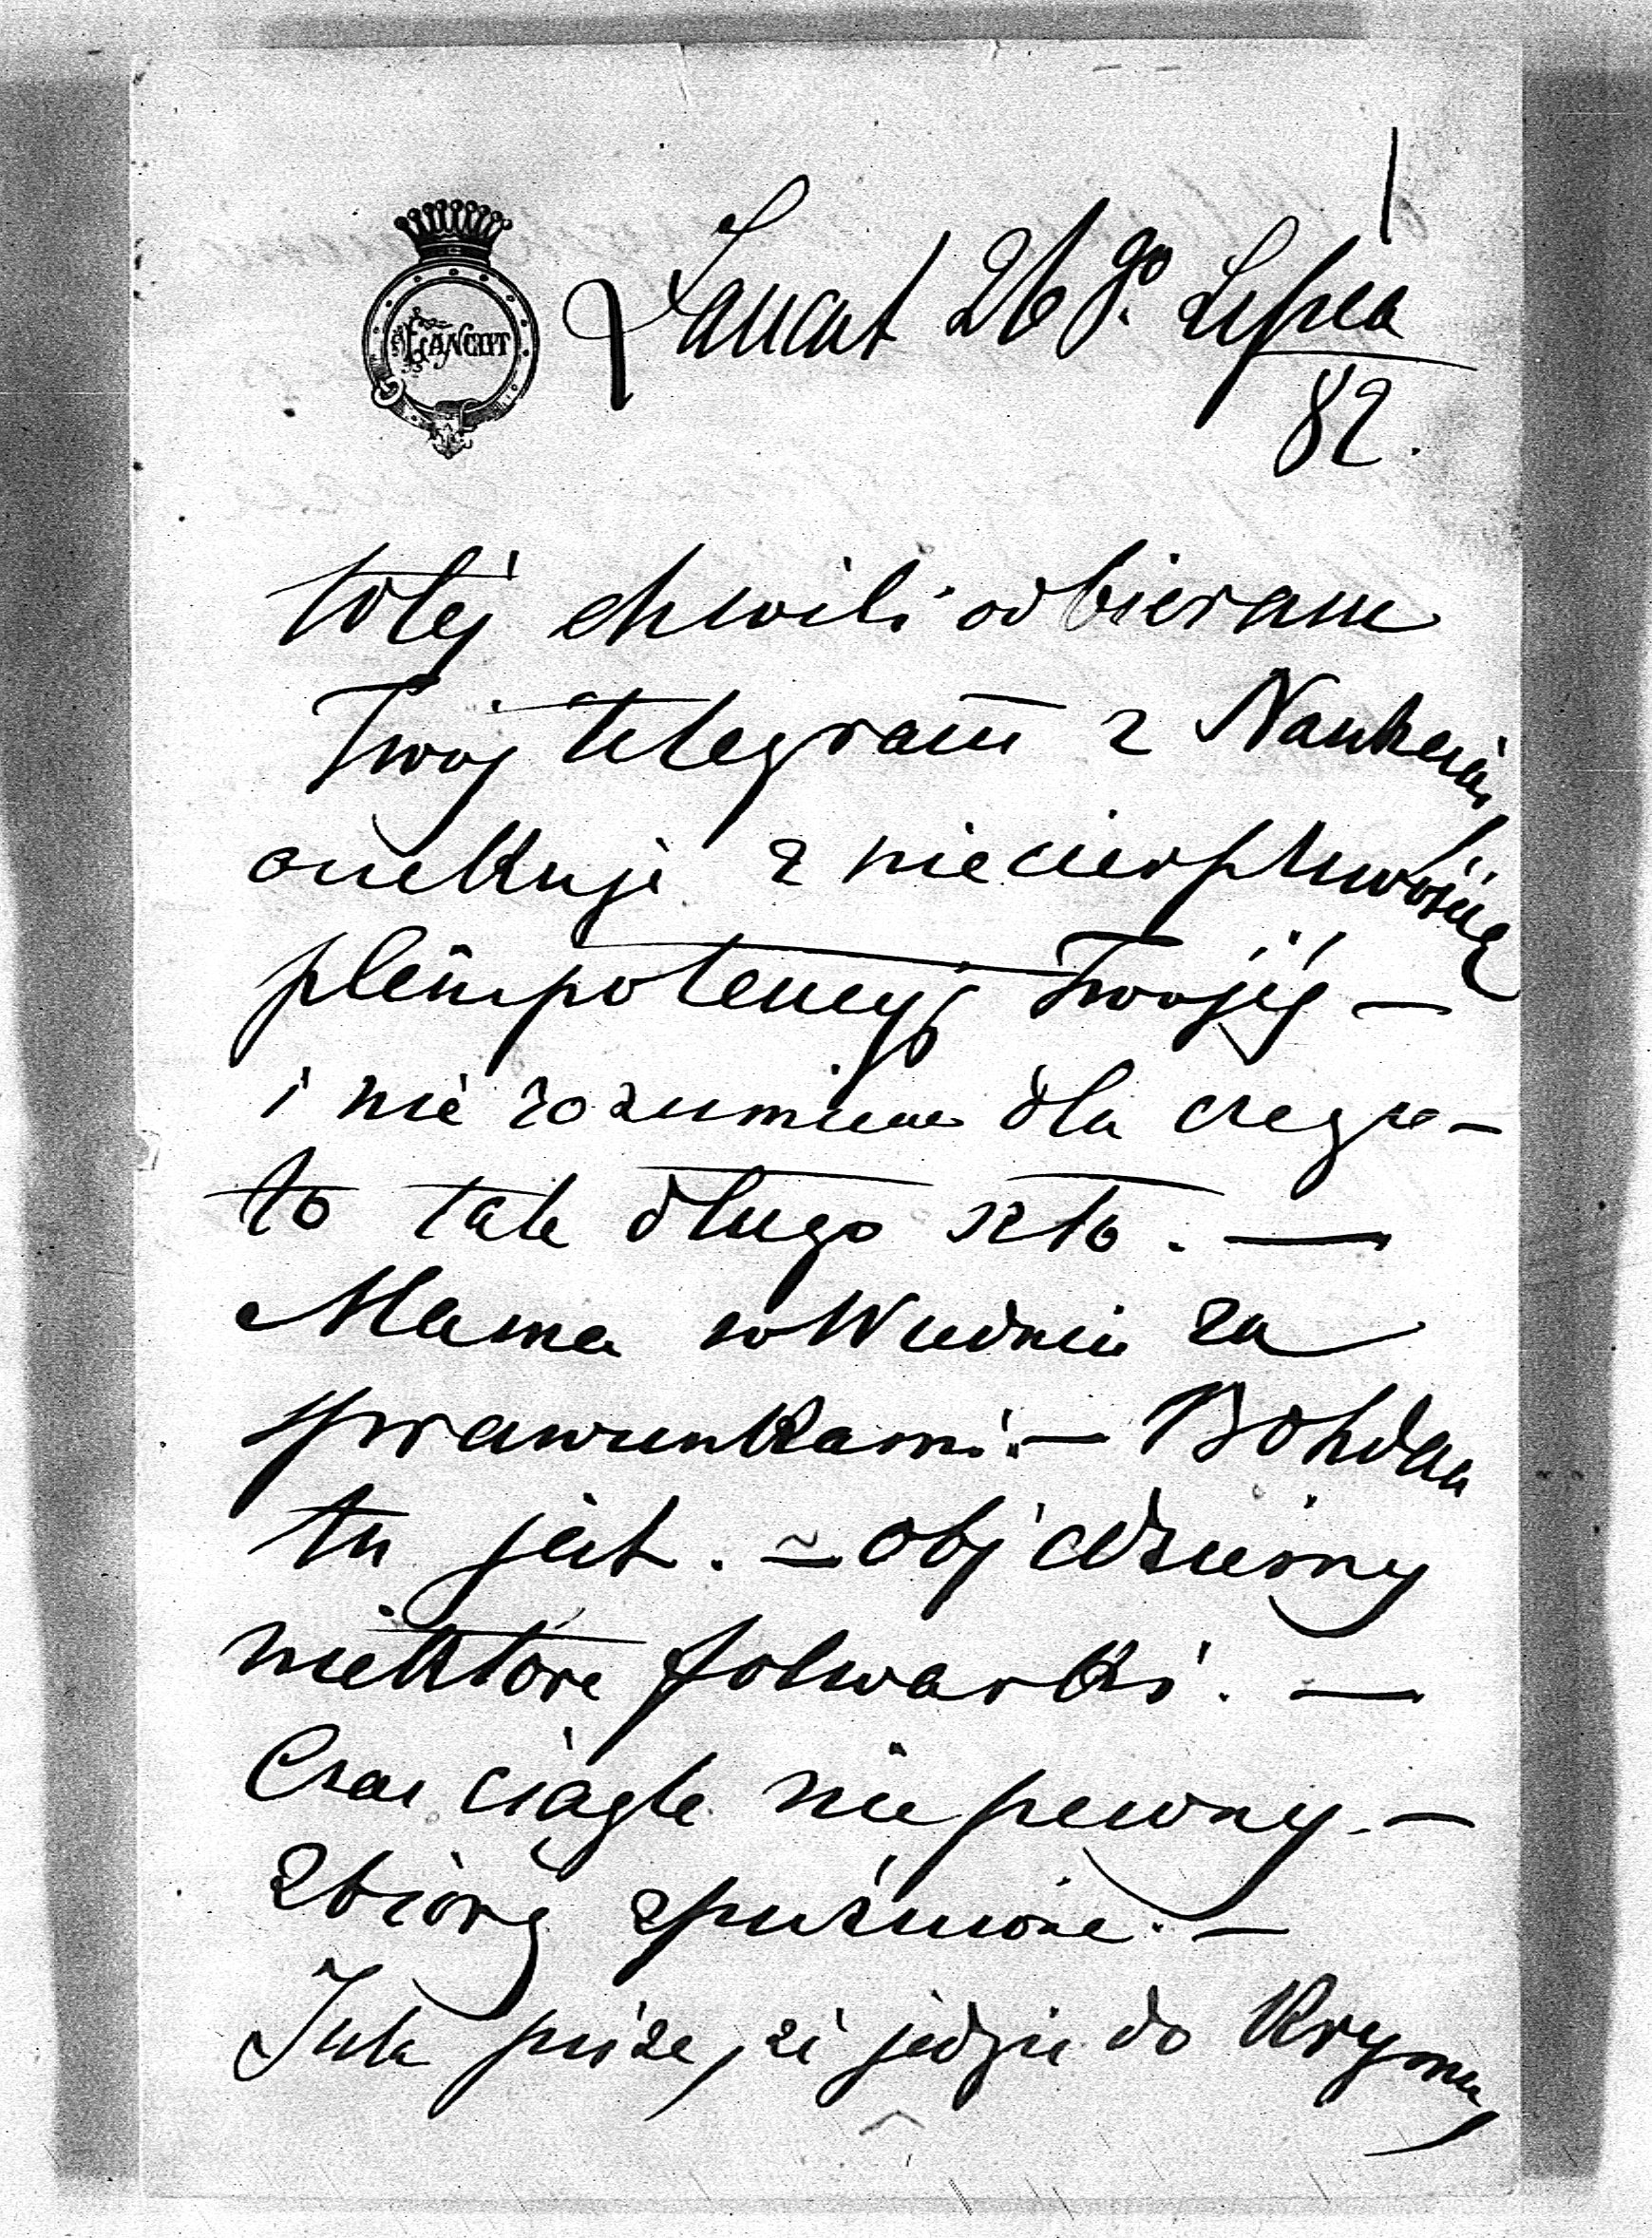 ŁAŃCUT
Łancut 26go Lipca
82.
W tej chwili odbieram
Twoj telegram z
oczekuje z niecierpliwością
plenipotencyi Twojéj —
i nie rozumiem dla czego —
to tak długo szło. —
Mama w Wiedniu za
sprawunkami. — Bohdan
tu jest. — objedziemy
niektóre folwarki. —
Czas ciągle niepewny. —
Zbiory spuźnione. —
Jula pisze, że jedzie do Krymu